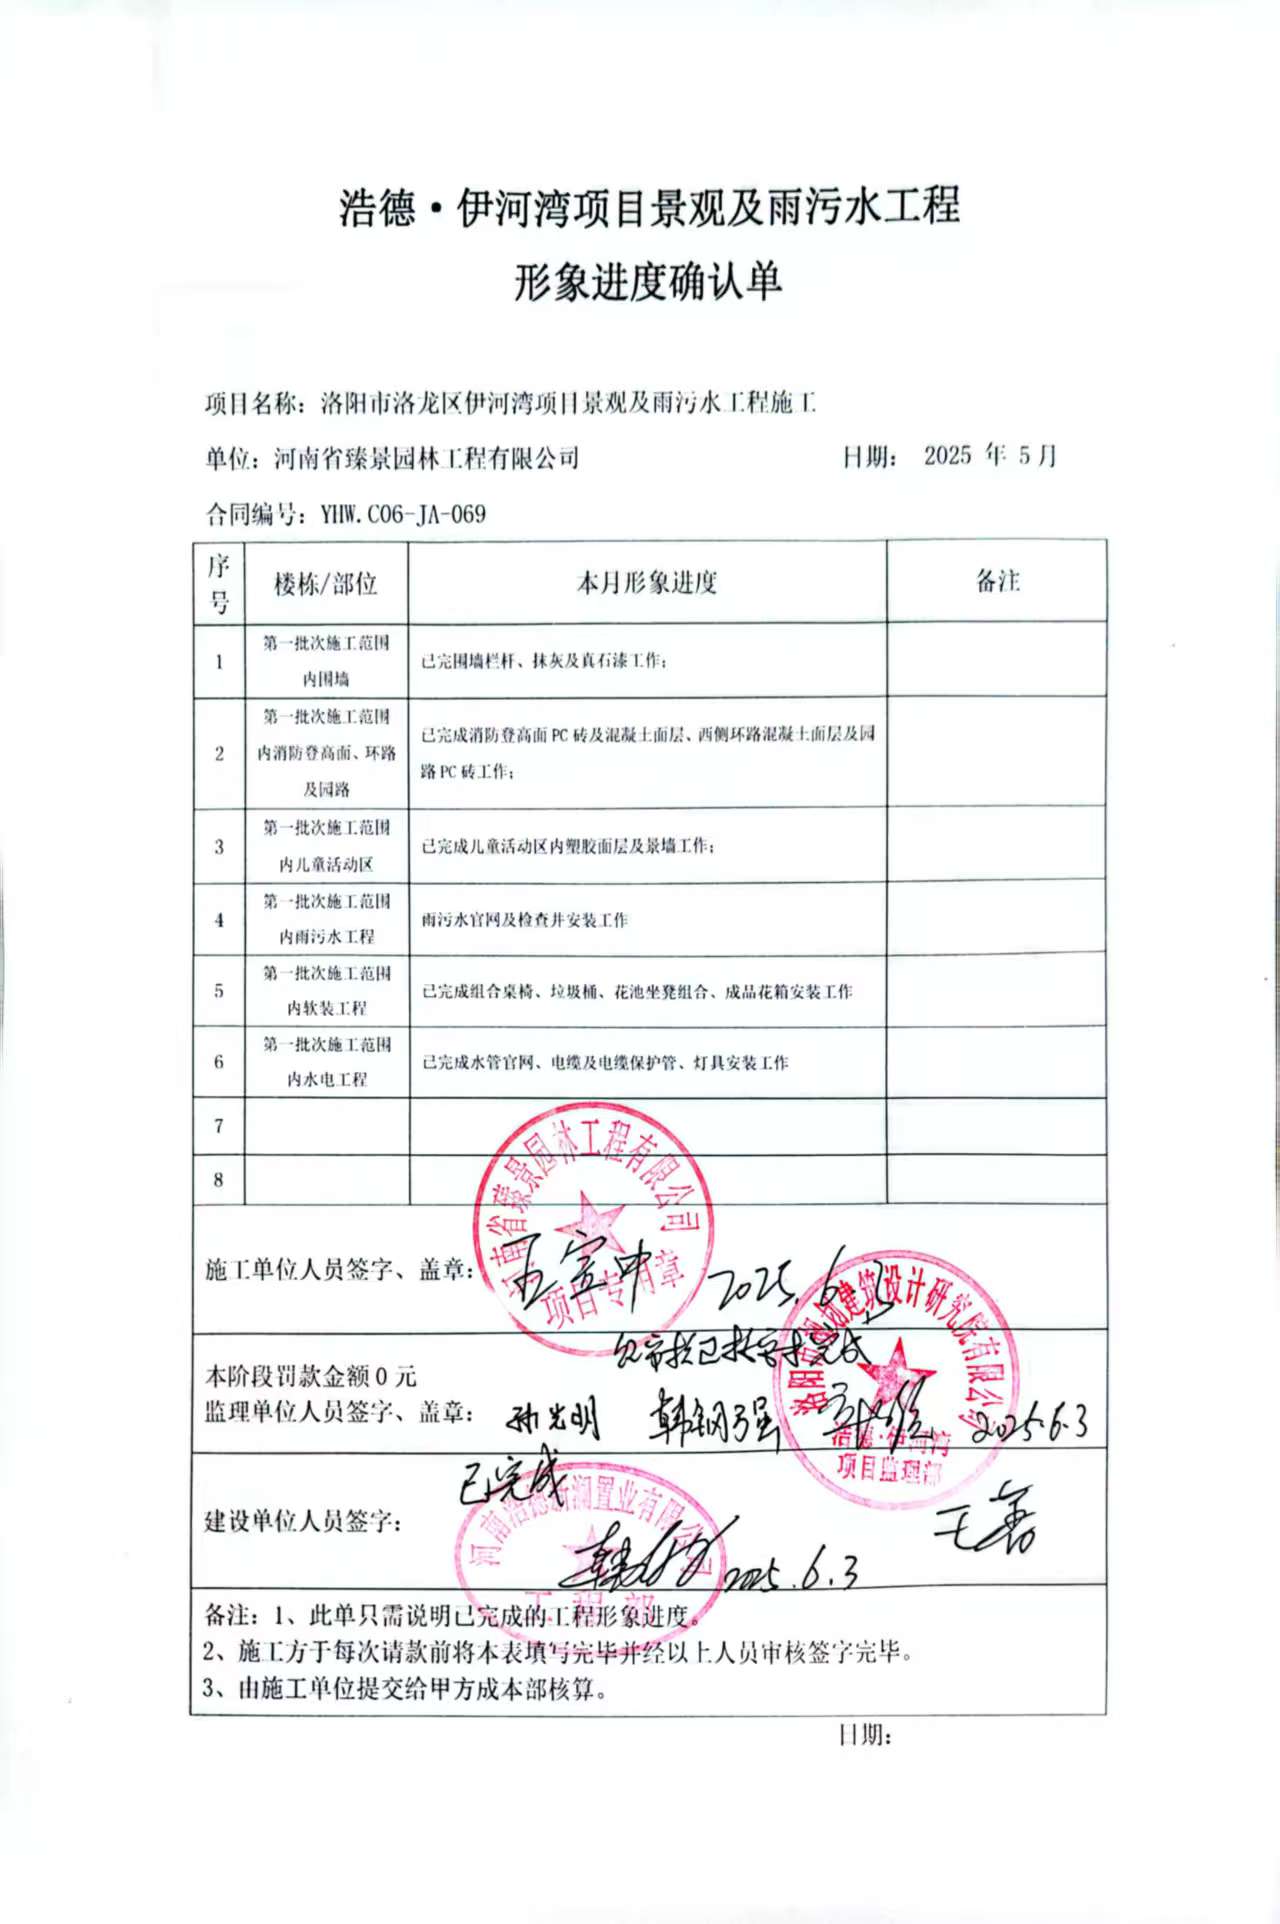 浩德·伊河湾项目景观及雨污水工程
形象进度确认单
项目名称：洛阳市洛龙区伊河湾项目景观及雨污水工程施工
单位：河南省臻景园林工程有限公司 日期： 2025 年 5月
合同编号：YHW.C06-JA-069
序号 楼栋/部位 本月形象进度 备注
1 第一批次施工范围
内围墙
已完围墙栏杆、抹灰及真石漆工作；
2 第一批次施工范围
内消防登高面、环路
及园路
已完成消防登高面PC砖及混凝土面层、西侧环路混凝土面层及园
路PC砖工作；
3 第一批次施工范围
内儿童活动区
已完成儿童活动区内塑胶面层及景墙工作；
4 第一批次施工范围
内雨污水工程
雨污水官网及检查井安装工作
5 第一批次施工范围
内软装工程
已完成组合桌椅、垃圾桶、花池坐凳组合、成品花箱安装工作
6 第一批次施工范围
内水电工程
已完成水管官网、电缆及电缆保护管、灯具安装工作
7
8
河南省臻景园林工程有限公司
项目专用章
施工单位人员签字、盖章：
2025.6.3
本阶段罚款金额0元
监理单位人员签字、盖章： 孙光明 韩钢强 2025.6.3
建筑设计研究院有限公司
浩德·伊河湾
项目监理部
已完成
建设单位人员签字：
2025.6.3
河南浩德新澜置业有限公司
工程部
备注：1、此单只需说明已完成的工程形象进度。
2、施工方于每次请款前将本表填写完毕并经以上人员审核签字完毕。
3、由施工单位提交给甲方成本部核算。
日期：